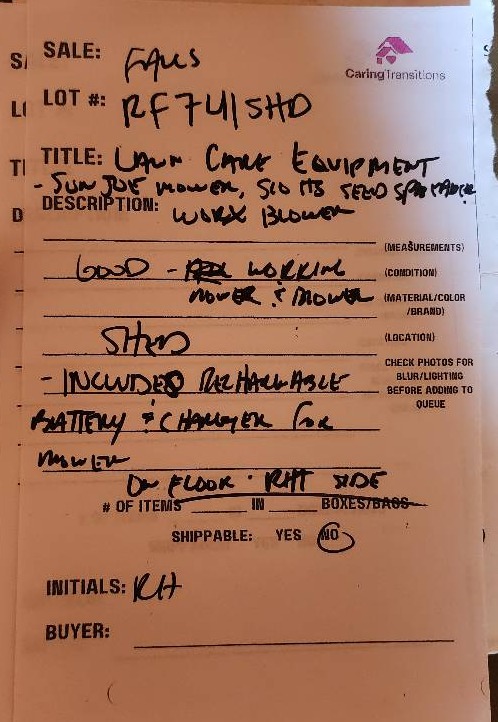 SALE: FALLS
CaringTransitions
LOT #: RF741SHD
TITLE: LAWN CARE EQUIPMENT
- SUN JOE MOWER, SCOTTS SEED SPREADER
DESCRIPTION: WORX BLOWER
(MEASUREMENTS)
GOOD - WORKING (CONDITION)
MOWER & MOWER (MATERIAL/COLOR
/BRAND)
SHED (LOCATION)
- INCLUDED RECHARGABLE
CHECK PHOTOS FOR
BLUR/LIGHTING
BEFORE ADDING TO
QUEUE
BATTERY & CHARGER FOR
MOWER
ON FLOOR - RHT SIDE
# OF ITEMS IN BOXES/BAGS
SHIPPABLE: YES NO
INITIALS: RH
BUYER: